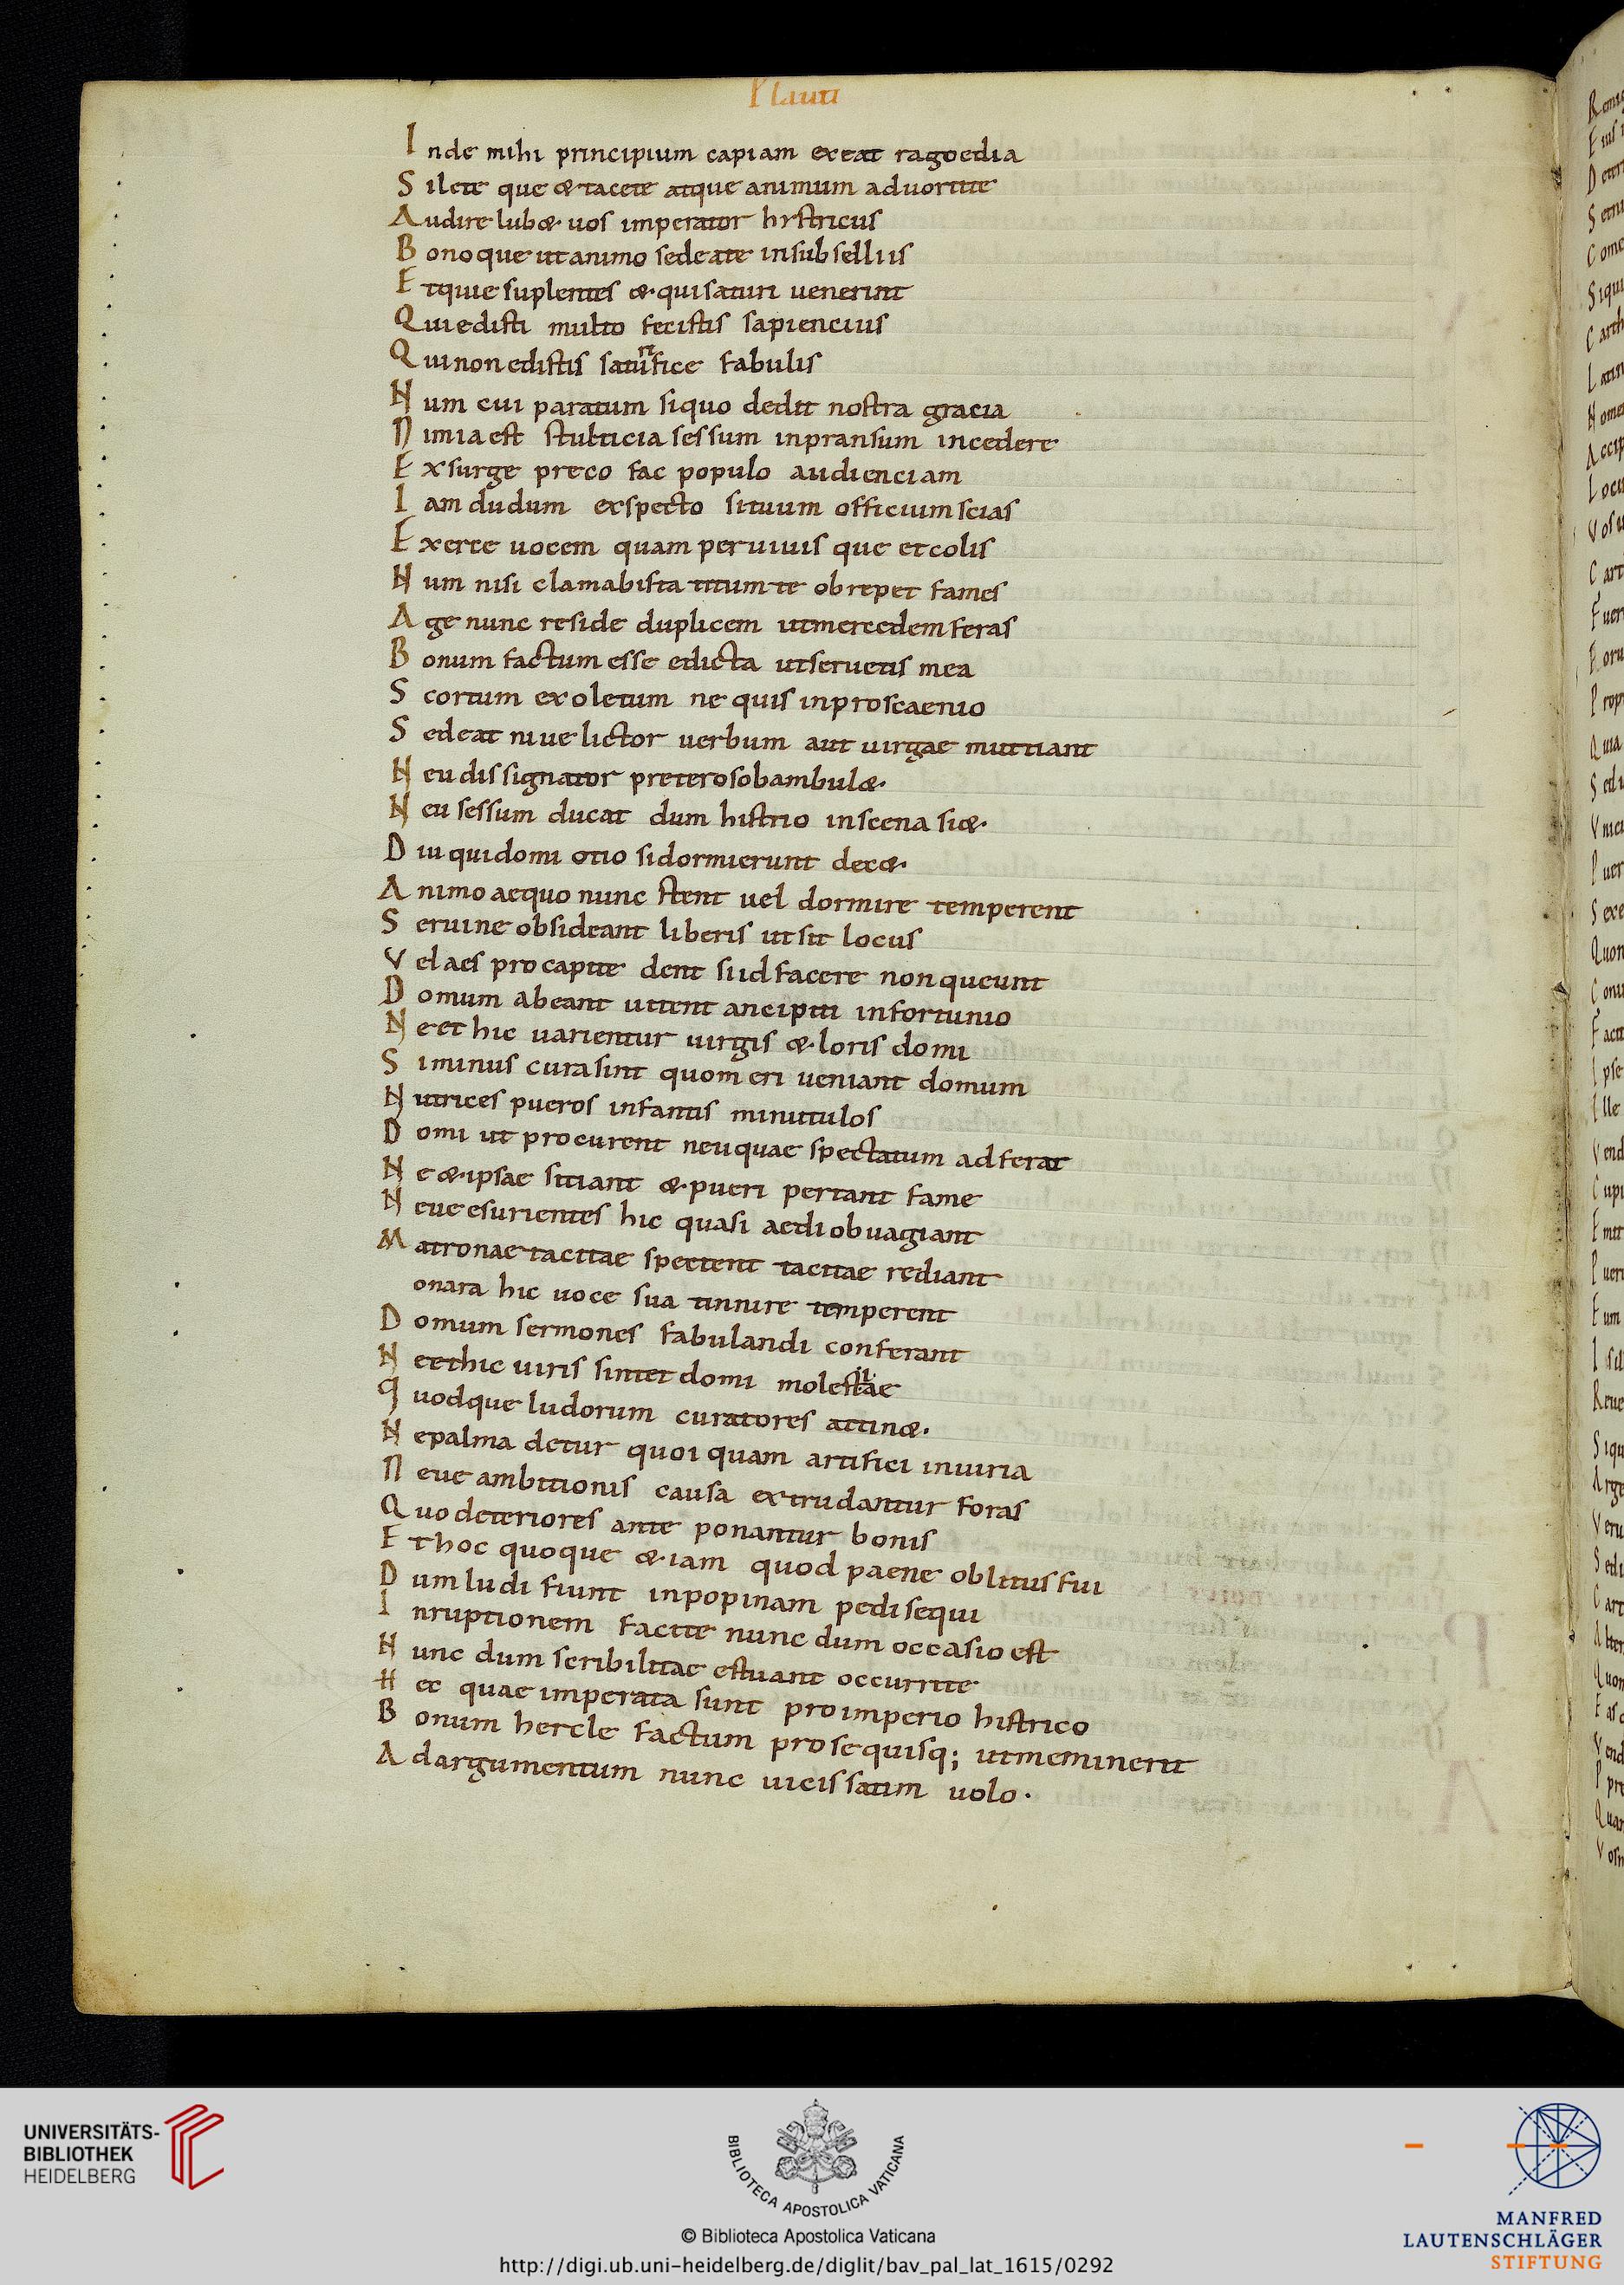 Plauti
Inde mihi principium capiam exeat ragoedia
Silete que & tacete atque animum aduortite
Audire lub& uos imperator hystricus
Bonoque ut animo sedeate in subselliis
Et quie suplentes & qui saturi uenerint
Qui edisti multo fecistis sapiencius
Qui non edistis saturifice fabulis
Num cui paratum siquo dedit nostra gracia
Nimia est stulticia sessum inpransum incedere
Exsurge preco fac populo audienciam
Iam dudum exspecto si tuum officium scias
Exerce uocem quam per uiuis que et colis
Num nisi clamabis ta titum te obrepet fames
Age nunc reside duplicem ut mercedem feras
Bonum factum esse edicta ut seruetis mea
Scortum exoletum ne quis in proscaenio
Sedeat niue lictor uerbum aut uirgae muttiant
Neu dissignator preter os obambul&
Neu sessum ducat dum histrio in scena si&
Diu qui domi otio si dormierunt dec&
Animo aequo nunc stent uel dormire temperent
Serui ne obsideant liberis ut sit locus
Vel aes pro capite dent si id facere non queunt
Domum abeant uitent ancipiti infortunio
Ne et hic uarientur uirgis & loris domi
Si minus curasint quom eri ueniant domum
Nutrices pueros infantis minutulos
Domi ut procurent neu quae spectatum adferat
Ne & ipsae sitiant & pueri pertant fame
Neue esurientes hic quasi aedi obuagiant
Matronae tacitae spectent tacitae rediant
onara hic uoce sua tinnire temperent
Domum sermones fabulandi conferant
Ne et hic uiris sintet domi molestiae
Quodque ludorum curatores attin&
Ne palma detur quoi quam artifici iniuria
Neue ambitionis causa extrudantur foras
Quo deteriores ante ponantur bonis
Et hoc quoque &iam quod paene oblitus fui
Dum ludi fiunt in popinam pedisequi
Inruptionem facite nunc dum occasio est
Nunc dum scribilitae estuant occurrite
Hec quae imperata sunt pro imperio histrico
Bonum hercle factum pro se quisq; ut meminerit
Ad argumentum nunc uicissatim uolo.
UNIVERSITÄTS-
BIBLIOTHEK
HEIDELBERG
BIBLIOTECA APOSTOLICA VATICANA
© Biblioteca Apostolica Vaticana
http://digi.ub.uni-heidelberg.de/diglit/bav_pal_lat_1615/0292
MANFRED
LAUTENSCHLÄGER
STIFTUNG